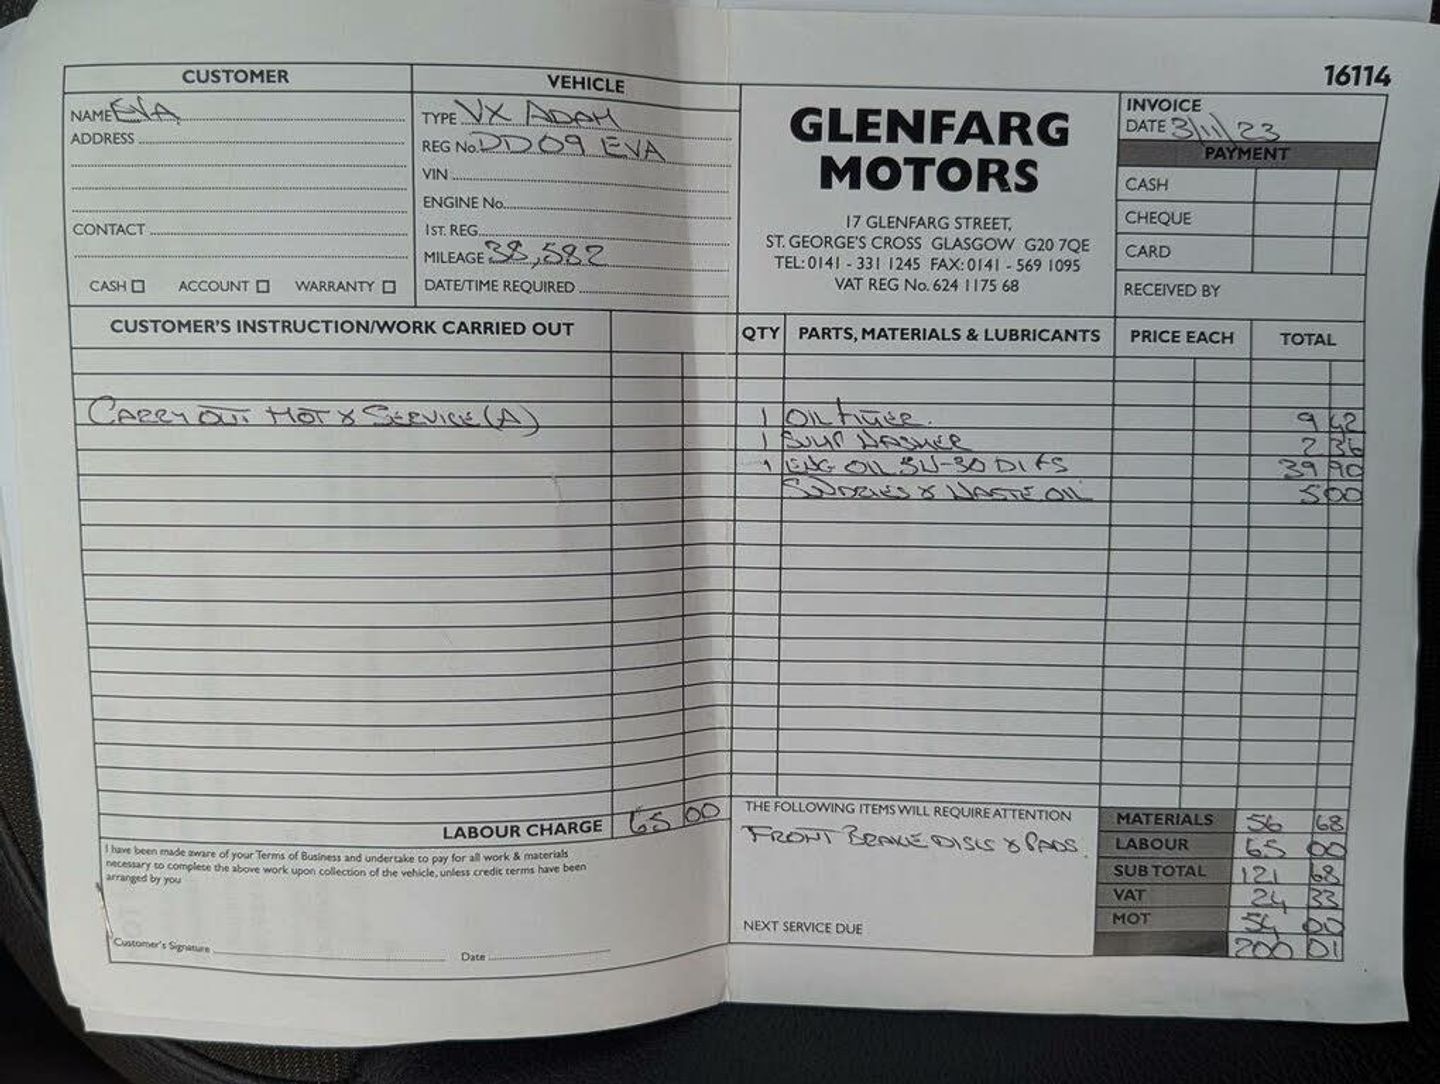 16114
CUSTOMER
NAME EVA
ADDRESS
CONTACT
CASH ACCOUNT WARRANTY
VEHICLE
TYPE VX ADAM
REG No. DD09 EVA
VIN
ENGINE No.
1ST. REG.
MILEAGE 38,582
DATE/TIME REQUIRED
GLENFARG
MOTORS
17 GLENFARG STREET,
ST. GEORGE'S CROSS GLASGOW G20 7QE
TEL: 0141 - 331 1245 FAX: 0141 - 569 1095
VAT REG No. 624 1175 68
INVOICE
DATE 3/11/23
PAYMENT
CASH
CHEQUE
CARD
RECEIVED BY
CUSTOMER'S INSTRUCTION/WORK CARRIED OUT
CARRY OUT MOT & SERVICE (A)
LABOUR CHARGE 65 00
I have been made aware of your Terms of Business and undertake to pay for all work & materials
necessary to complete the above work upon collection of the vehicle, unless credit terms have been
arranged by you
Customer's Signature Date
QTY PARTS, MATERIALS & LUBRICANTS PRICE EACH TOTAL
1 OIL FILTER 9 42
1 SUMP WASHER 2 36
1 ENG OIL 5W-30 39 90
SUNDRIES & WASTE OIL 5 00
THE FOLLOWING ITEMS WILL REQUIRE ATTENTION
FRONT BRAKE DISCS & PADS.
NEXT SERVICE DUE
MATERIALS 56 68
LABOUR 65 00
SUB TOTAL 121 68
VAT 24 33
MOT 54 00
200 01